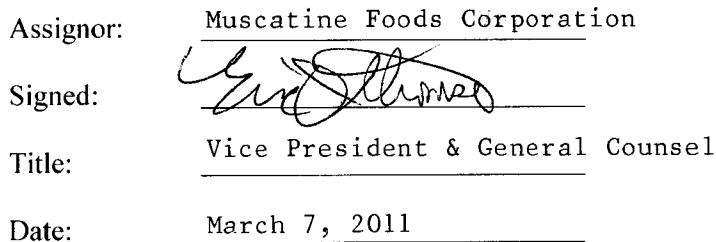 Assignor: Muscatine Foods Corporation
Signed:
Title: Vice President & General Counsel
Date: March 7, 2011